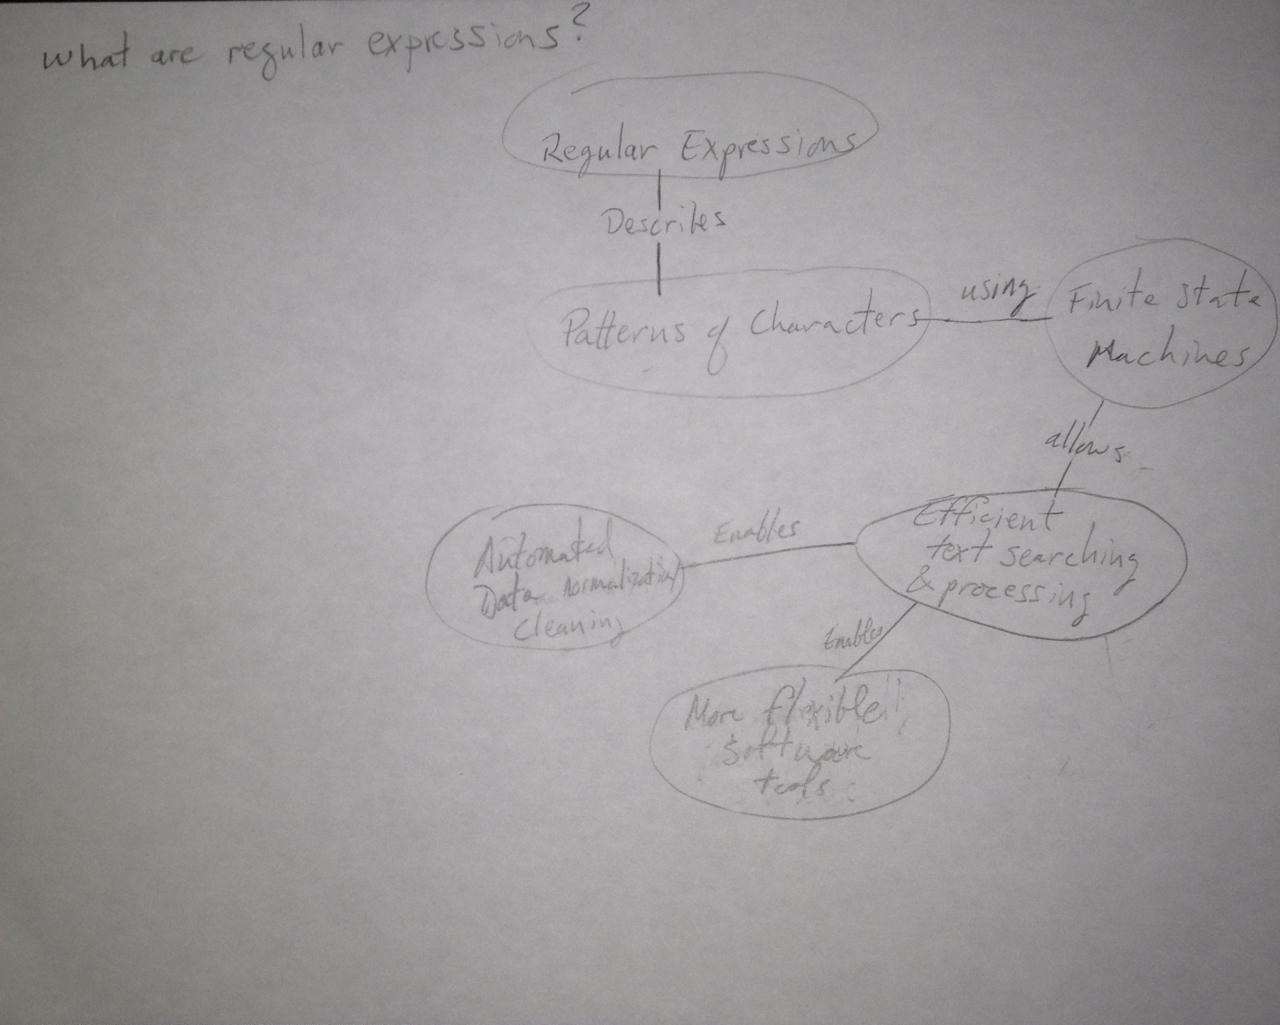 What are regular expressions?
Regular Expressions
Describes
Patterns of Characters
using
Finite State
Machines
allows
Efficient
text searching
& processing
Enables
Automated
Data normalization/
cleaning
Enables
More flexible
software
tools